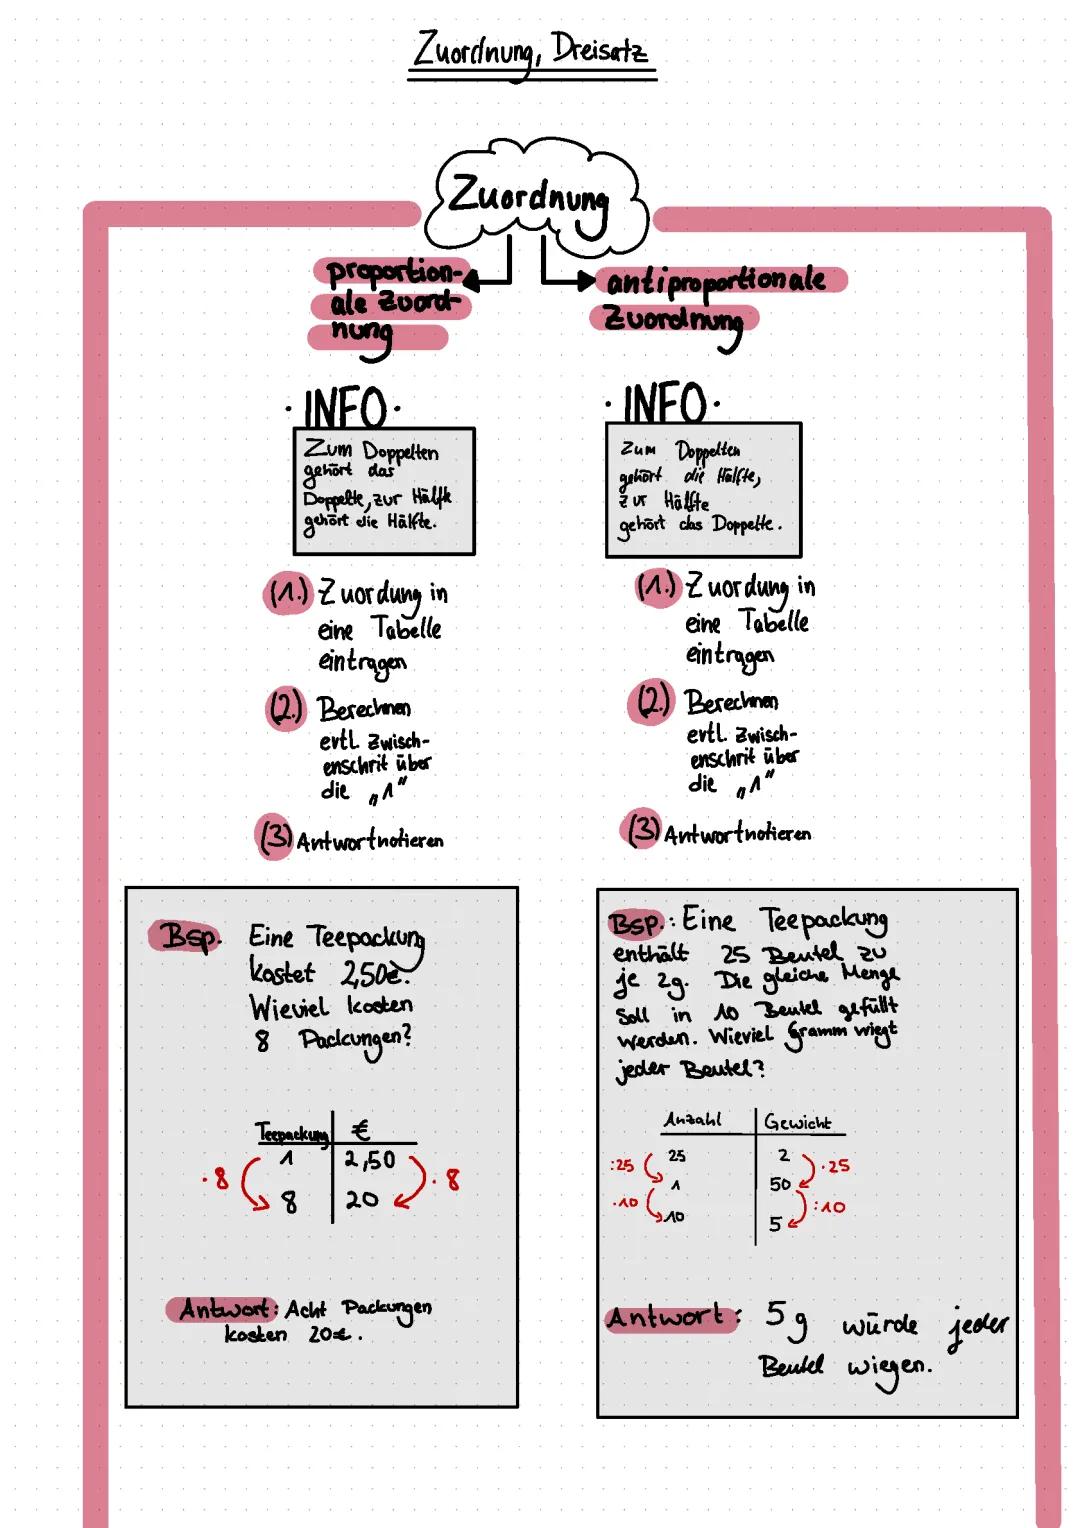 Zuordnung, Dreisatz
Zuordnung
proportion-
ale Zuord-
nung
· INFO ·
Zum Doppelten
gehört das
Doppelte, zur Hälfte
gehört die Hälfte.
(1.) Zuordung in
eine Tabelle
eintragen
(2.) Berechnen
evtl. Zwisch-
enschrit über
die „1“
(3) Antwort notieren
Bsp. Eine Teepackung
kostet 2,50€.
Wieviel kosten
8 Packungen?
Teepackung €
1 2,50
·8 ·8
8 20
Antwort: Acht Packungen
kosten 20€.
antiproportionale
Zuordnung
· INFO ·
Zum Doppelten
gehört die Hälfte,
zur Hälfte
gehört das Doppelte.
(1.) Zuordung in
eine Tabelle
eintragen
(2.) Berechnen
evtl. Zwisch-
enschrit über
die „1“
(3) Antwort notieren
Bsp.: Eine Teepackung
enthält 25 Beutel zu
je 2g. Die gleiche Menge
Soll in 10 Beutel gefüllt
werden. Wieviel Gramm wiegt
jeder Beutel?
Anzahl Gewicht
25 2
:25 ·25
1 50
·10 :10
10 5
Antwort: 5g würde jeder
Beutel wiegen.